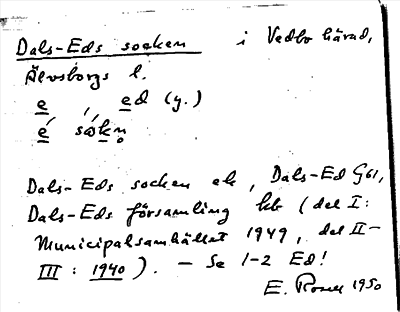 Dals-Eds socken i Vedbo härad,
Älvsborgs l.
e, ed (y.)
é sókn̥
Dals-Eds socken ek, Dals-Ed G61,
Dals-Eds församling kb (del I:
Municipalsamhället 1949, del II-
III: 1940). - Se 1-2 Ed!
E. Rosell 1950